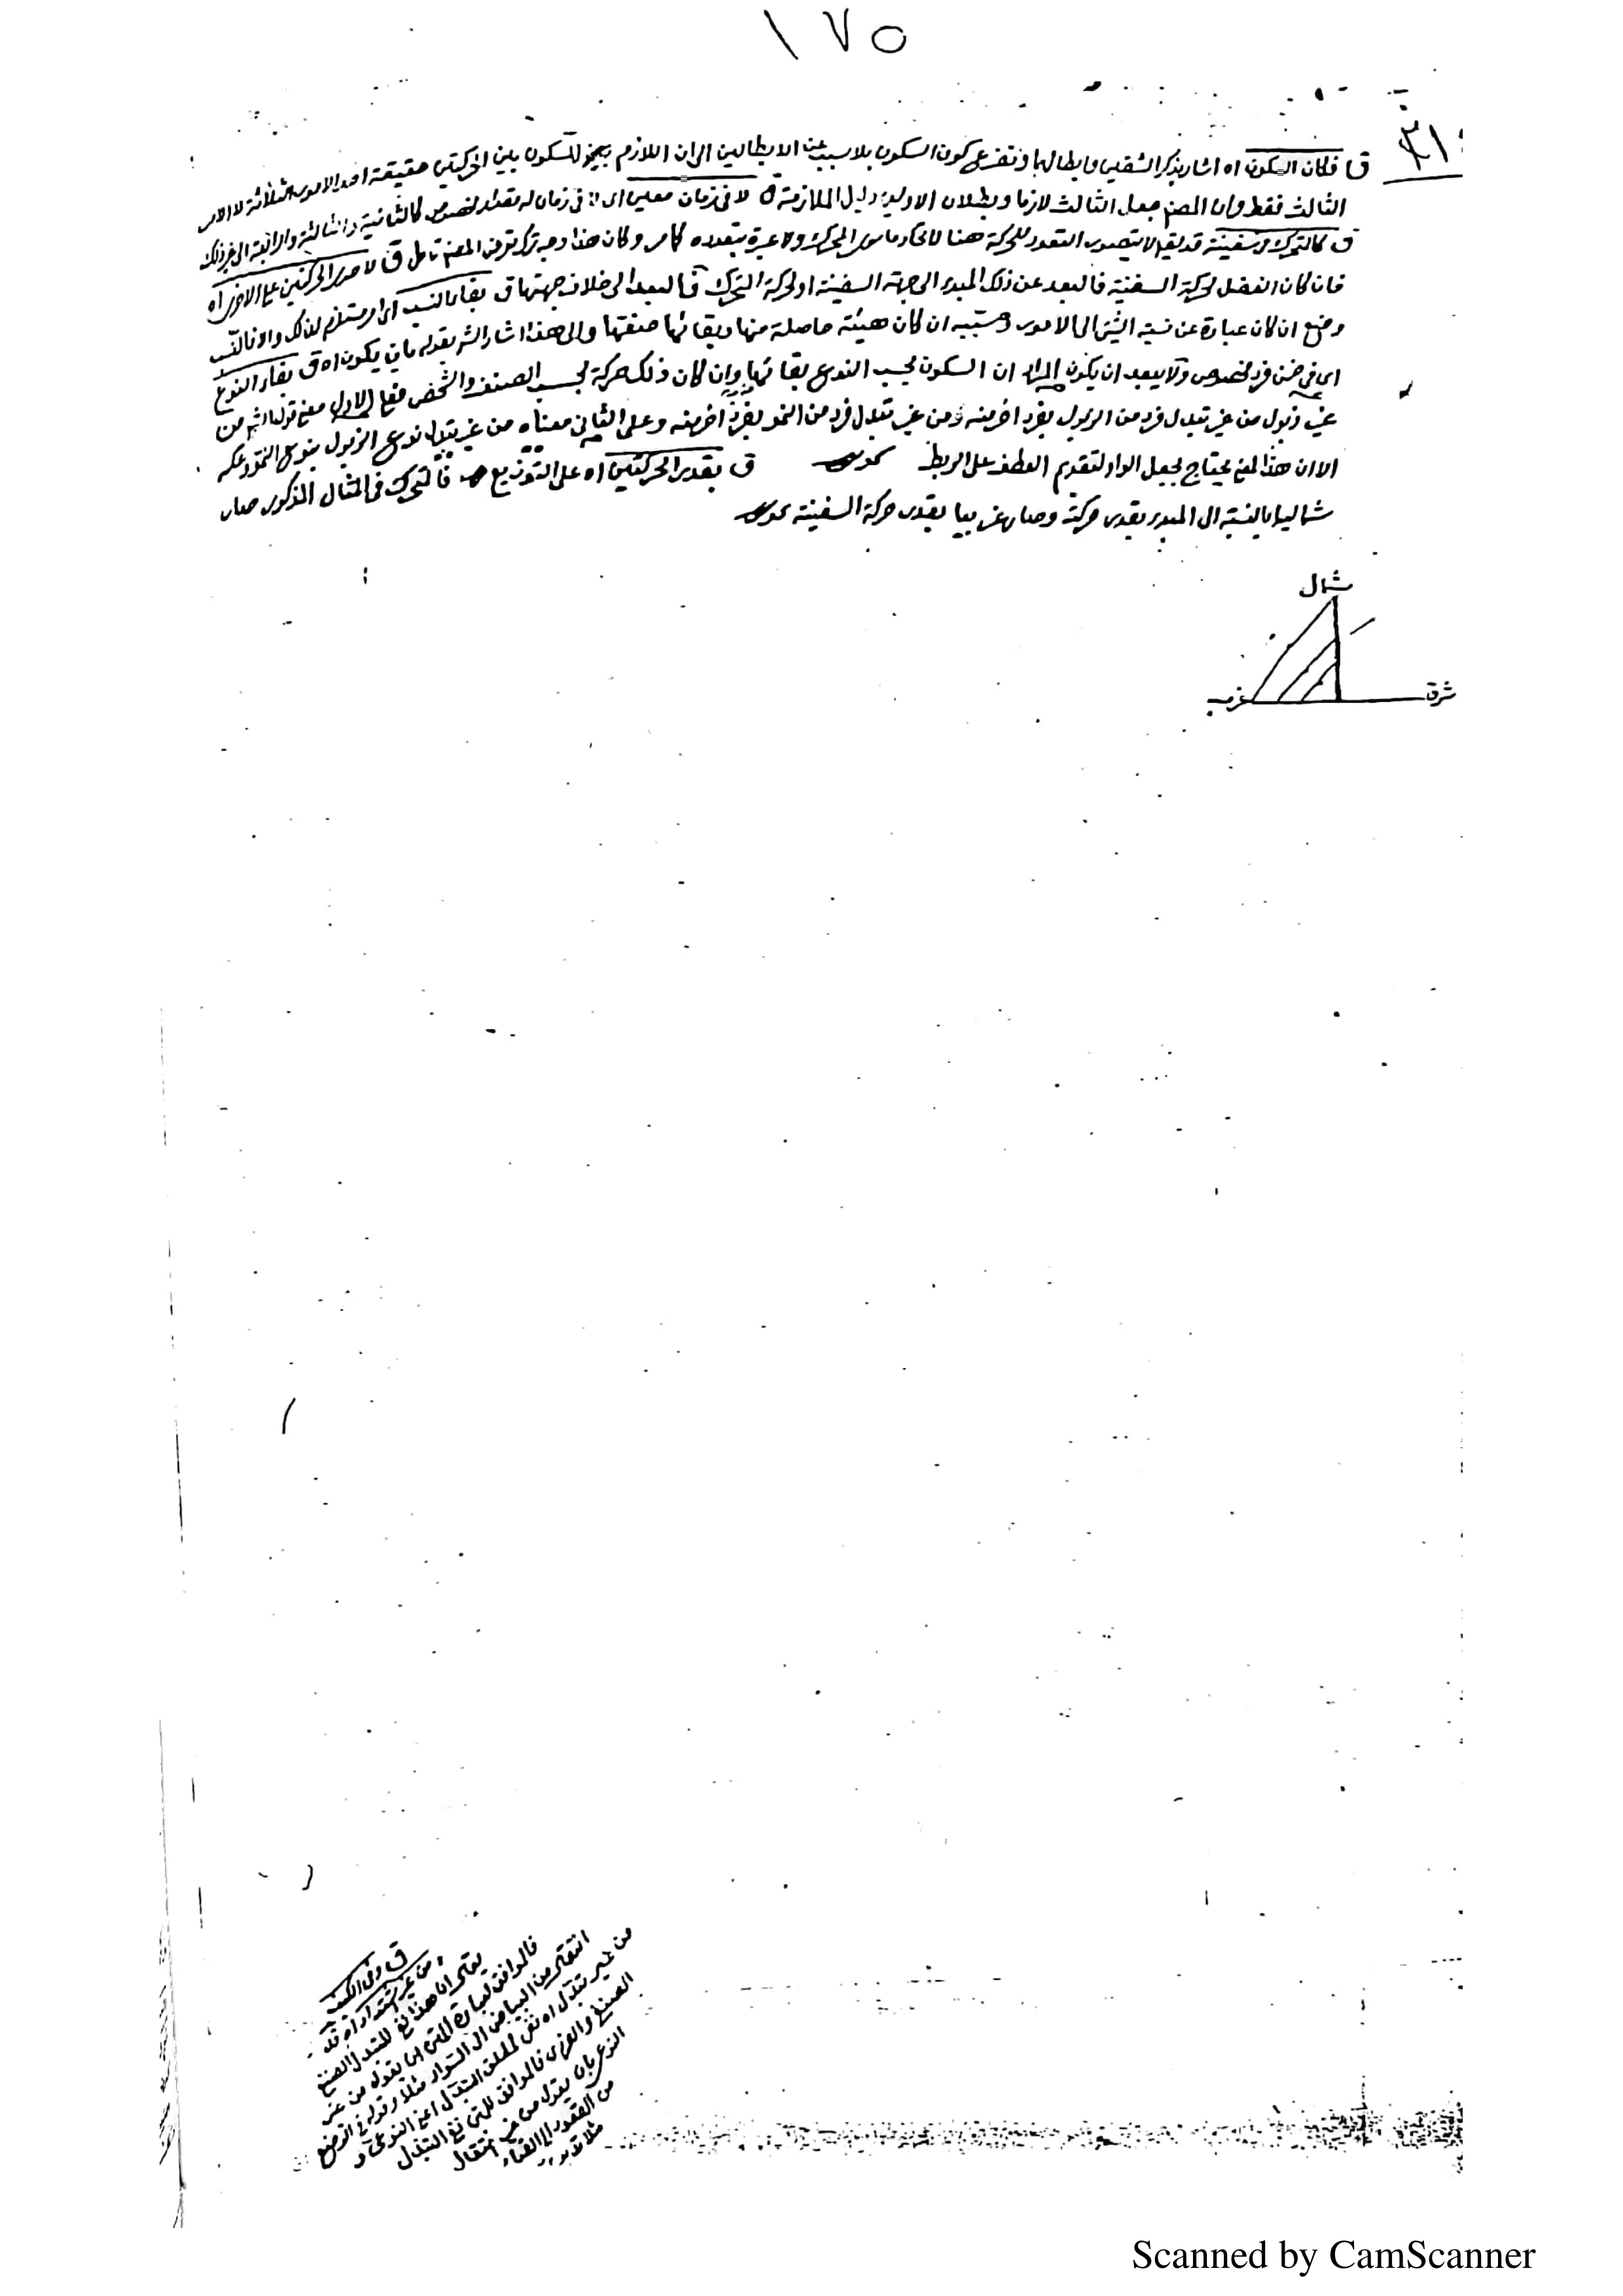 ١٧٥
٣١
ق فكان السكون اه اشار بذكر الشقين وابطالهما وتفرع كون السكون بلا سبب عن الابطالين الى ان اللازم للسكون بين الحركتين حقيقة احد الامور الثلاثة لا الامر
الثالث فقط وان المصنف جعل الثالث لازما وبطلان الاولين دليل الملازمة ق لا فى زمان معين اى لا فى زمان له مقدار مخصوص كالثانية والثالثة والرابعة الى غير ذلك
ق كالمتحرك فى سفينة قد يقال لا يتصور التعدد للحركة هنا لاتحاد ما سوى المحرك ولا عبرة بتعدده كما مر وكان هذا وجه ترك تعرض المصنف تأمل ق لا حدى الحركتين على الاخرى اه
فان كان الفضل لحركة السفينة فالبعد عن ذلك المبدء الى جهة السفينة او لحركة المتحرك فالبعد الى خلاف جهتها ق بقاء بالنسب اى امر مستلزم لذلك والا فالنسب
وضع ان كان عبارة عن نسبة الشئ الى الامور ومسببه ان كان هيئة حاصلة منها وبقائها صفتها والى هذا اشار الشر بقوله بان يكون اه ق بقاء النوع
اى فى ضمن فرد مخصوص ولا يبعد ان يكون المراد ان السكون بحسب النوع بقائها وان كان ذلك حركة بحسب الصنف والشخص فعلى الاول معنى قوله الشر من
غير ذبول من غير تبدل فرد من الذبول بفرد اخر منه ومن غير تبدل فرد من النمو بفرد اخر منه وعلى الثانى معناه من غير تبدل نوع الذبول بنوع النمو وعكسه
الا ان هذا المعنى يحتاج لجعل الواو لتقديم العطف على الربط ق بقدر الحركتين اه على التوزيع فالمتحرك فى المثال المذكور صار
شماليا بالنسبة الى المبدء بقدر حركته وصار غربيا بقدر حركة السفينة
شمال
شرق
غرب
ق وفى الكيف
من غير اشتداد اه قد
يقال ان هذا نفى للتبدل الصنفى
فالموافق لعبارة المتن ان يقول من غير
انتقال من البياض الى السواد مثلا وقوله فى الوضع
من غير تبدل اه نفى لمطلق التبدل اعم النوعى و
الصنفى والفردى فالموافق للمتن نفى التبدل
النوعى بان يقول من غير انتقال
من القعود الى القيام
مثلا تدبر
Scanned by CamScanner